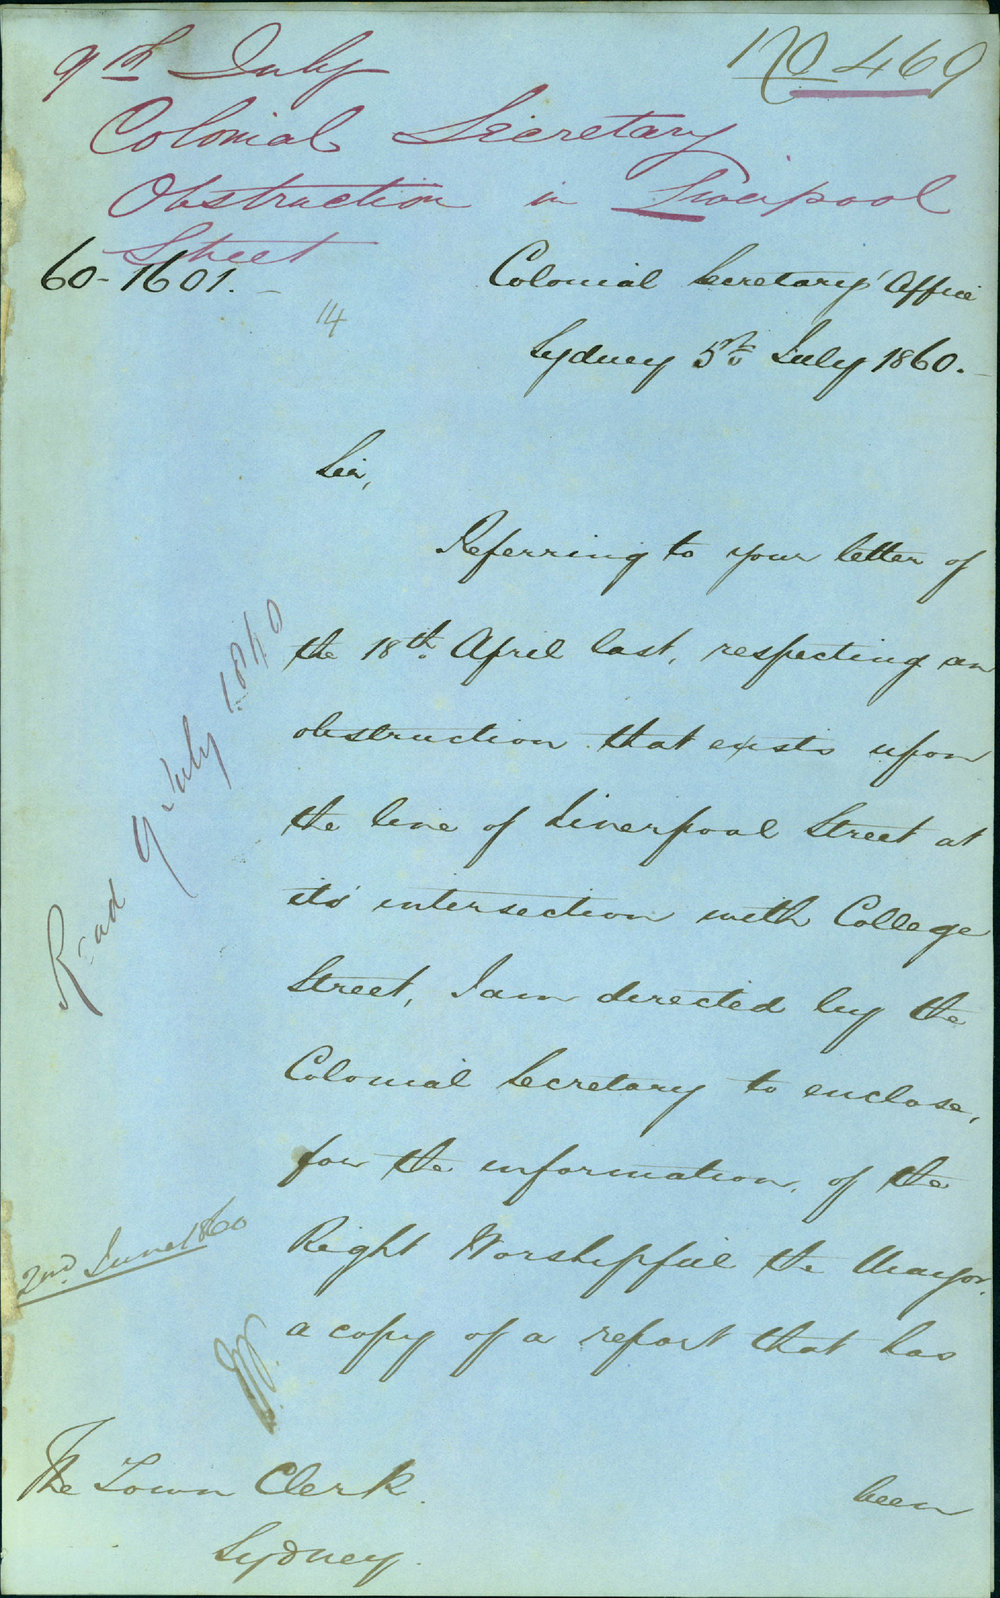 9th July
No 469
Colonial Secretary
Obstruction in Liverpool
Street
60-1601.
14
Colonial Secretary's Office
Sydney 5th July 1860.
Sir,
Referring to your letter of
the 18th April last, respecting an
obstruction that exists upon
the line of Liverpool Street at
its intersection with College
Street, I am directed by the
Colonial Secretary to enclose,
for the information, of the
Right Worshipful the Mayor,
a copy of a report that has
been
Read 9 July 1860
2nd June 1860
The Town Clerk.
Sydney.